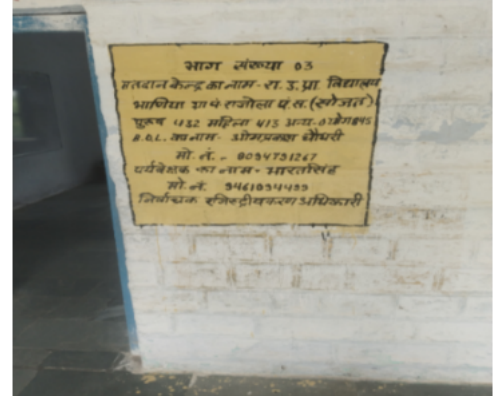 भाग संख्या 03
मतदान केन्द्र का नाम- रा. उ. प्रा. विद्यालय
भाणिया ग्रा पं राजोला पं.स. (सोजत)
पुरूष 432 महिला 413 अन्य-0 योग 845
B.O.L. का नाम- ओमप्रकाश चौधरी
मो. नं. - 8094791267
पर्यवेक्षक का नाम- भारतसिंह
मो. नं.
निर्वाचक रजिस्ट्रीयकरण अधिकारी